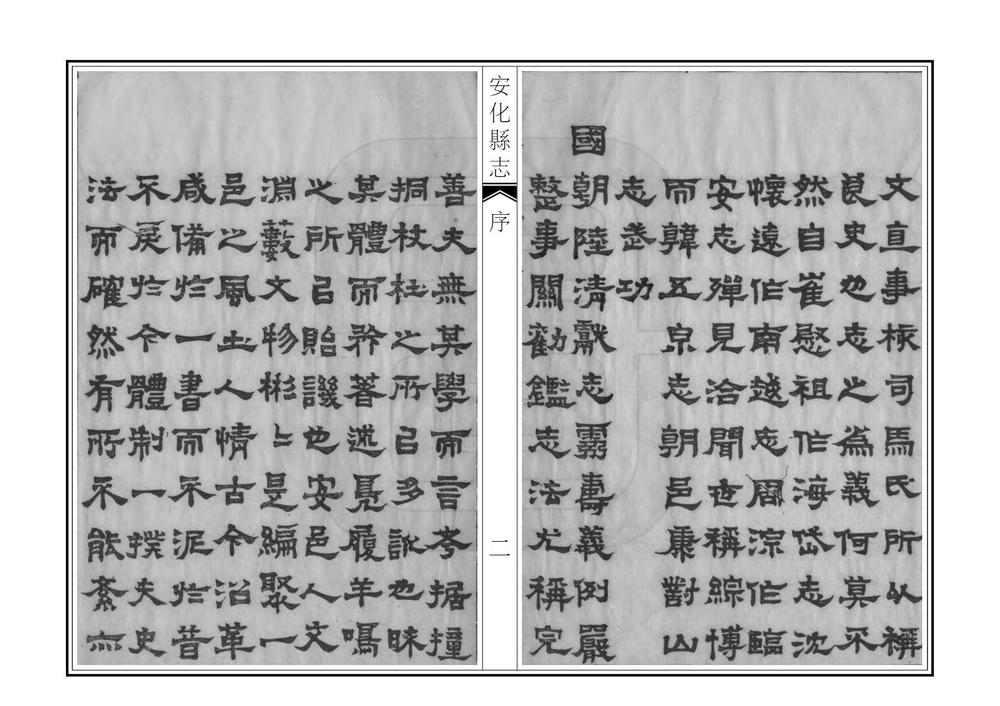 安化縣志
序
二
文直事核司馬氏所以稱
良史也志之為義何莫不
然自崔慰祖作海岱志沈
懷遠作南越志周淙作臨
安志殫見洽聞世稱綜博
而韓五泉志朝邑康對山
志武功
國朝陸清獻志靈壽義例嚴
整事關勸鑑志法尤稱完
善夫無其學而言考据撞
挏杖杜之所㠯多訛也昧
其體而矜著述鳧履羊鳴
之所㠯貽譏也安邑人文
淵藪文物彬〻是編聚一
邑之風土人情古今沿革
咸備於一書而不泥於昔
不戾於今體制一揆夫史
法而確然有所不能紊亦